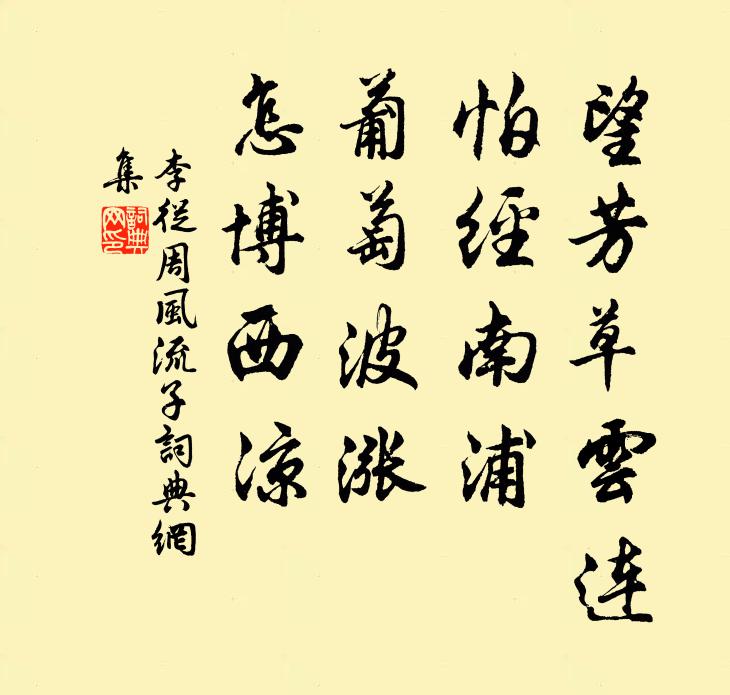 望芳草雲連
怕經南浦
葡萄波漲
怎博西凉
李從周風流子詞典網
集
詞典網印